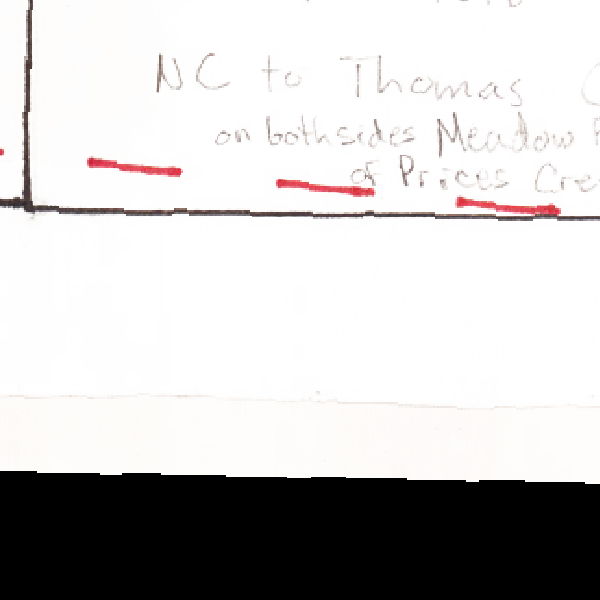 NC to Thomas
on bothsides Meadow
of Prices